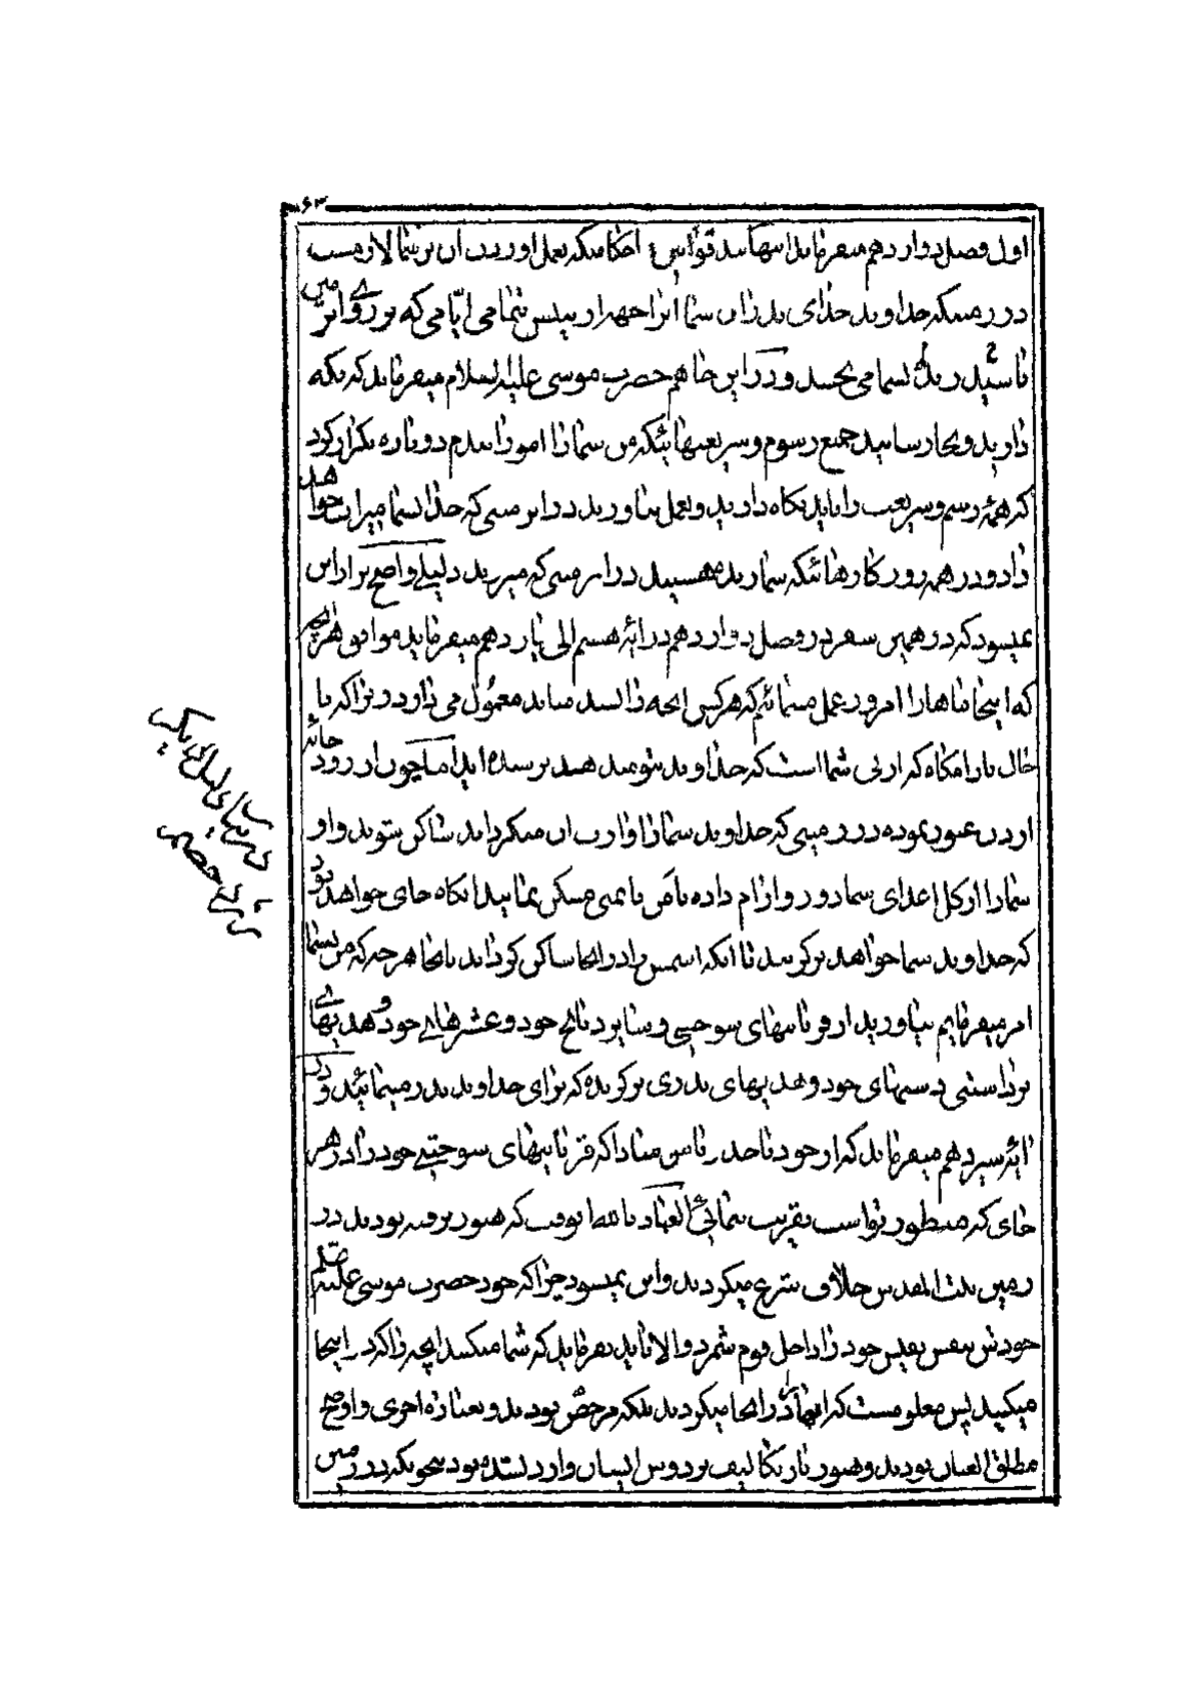 ۶۳
اول فصل دواردهم میفرماید اینهایند قوانین و احکامیکه بعمل اوردن ان بر شما لازمست
در زمینیکه خداوند خدای پدران شما انرا جهة ارث پیش تمامی ایّامی که بر روی این زمین
باشید بدل بشما می بخشد و در این جا هم حضرت موسی علیه السلام میفرماید که نکه
دارید و بجا رسانید جمیع رسوم و شریعتهائیکه من شمارا امورانیدم دوباره تکرار کرد
که همۀ رسم و شریعت را باید نکاه دارید و بعمل بیاورید در این زمینی که خدا بشما میراث خواهد
داد و در همه روزکارهائیکه شما زنده هستید در این زمینی که میرید دلیلی واضح تر از این
نمیشود که در همین سفر در فصل دواردهم در ایۀ هشتم الی یازدهم میفرماید موافق هر چیز
که اینجا ماها را امروز عمل مینمائیم که هر کس انچه را پسند میاید معمول می دارد زیرا که تا
حال بارامکاه که ارثی شما است که خداوند بتو میدهد نرسیده اید اما چون از رودخانۀ
اردن عبور نموده در زمینی که خداوند شمارا وارث ان میکرداند ساکن شوید و او
شما را از کل اعدای شما دور و ارام داده بامن یا یمنی مسکن نمائید انکاه جای خواهد بود
که خداوند شما خواهد برکزید تا انکه اسمش را در انجا ساکن کرداند بانجا هر چه که من بشما
امر میفرمایم بیاورید از قربانیهای سوختنی و سایر ذبایح خود و عشرهای خود و هدیهای
برداشتنی دستهای خود و هدیهای نذری برکزیده که برای خداوند نذر مینمائید و در
ایۀ سیزدهم میفرماید که از خود باحذر باش مبادا که قربانیهای سوختنی خود را در هر
جای که منظور تواست تقریب نمائی العیاذ بالله انوقت که هنوز نرفته بودند در
زمین بیت المقدس خلاف شرع میکردند و این نمیشود چرا که خود حضرت موسی علیه السلام
خودش بنفس نفیس خود را داخل قوم شمرد والا باید بفرماید که شما میکنید انچه را که در اینجا
میکنید پس معلومست که اینها در انجا میکردند بلکه مرخص بودند و بعبارة اخری و اوضح
مطلق العنان بودند و هنوز بار تکالیف بر دوش ایشان وارد نشده بود بنحویکه در زمین